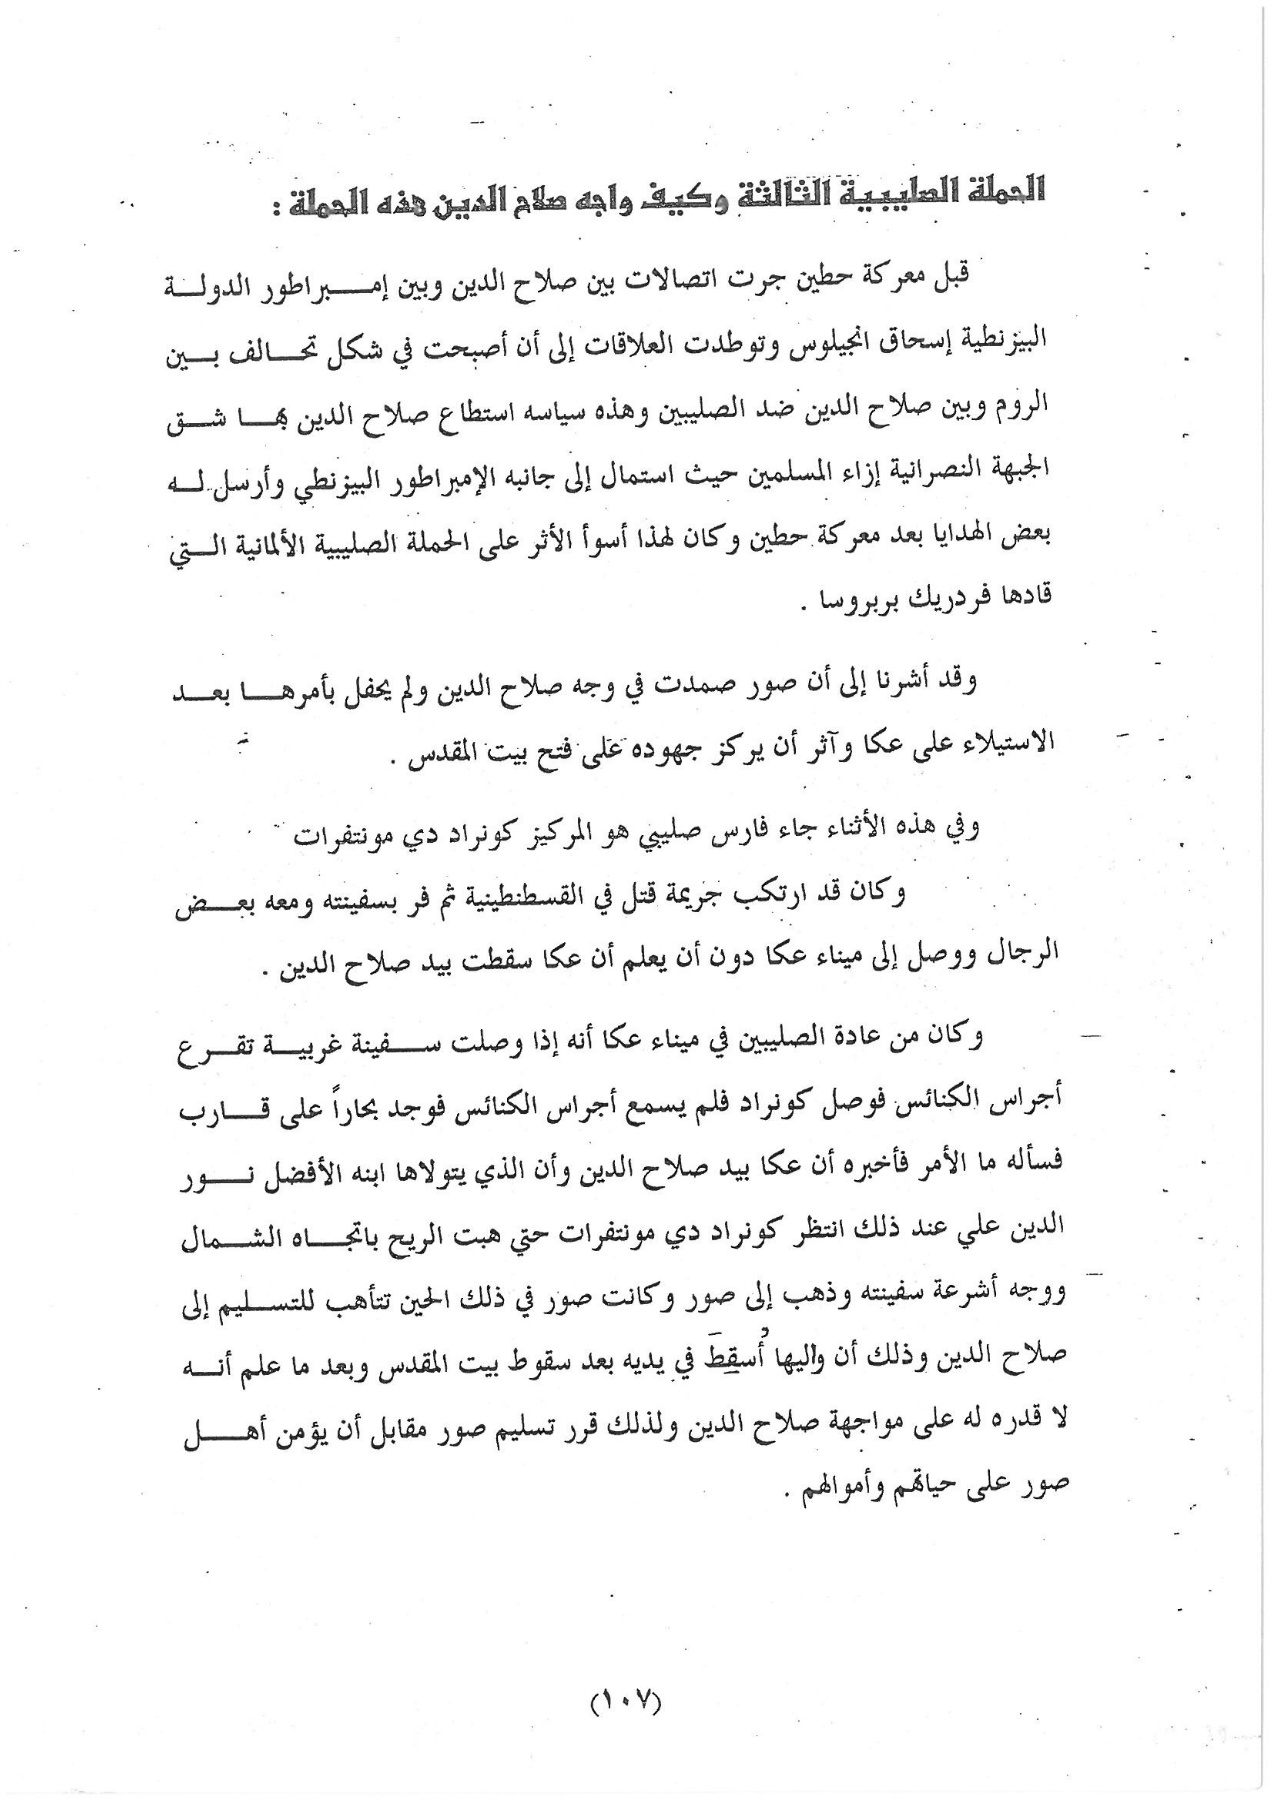 الحملة الصليبية الثالثة وكيف واجه صلاح الدين هذه الحملة :
قبل معركة حطين جرت اتصالات بين صلاح الدين وبين إمبراطور الدولة
البيزنطية إسحاق انجيلوس وتوطدت العلاقات إلى أن أصبحت في شكل تحالف بين
الروم وبين صلاح الدين ضد الصليبين وهذه سياسه استطاع صلاح الدين بها شق
الجبهة النصرانية إزاء المسلمين حيث استمال إلى جانبه الإمبراطور البيزنطي وأرسل له
بعض الهدايا بعد معركة حطين وكان لهذا أسوأ الأثر على الحملة الصليبية الألمانية التي
قادها فردريك بربروسا .
وقد أشرنا إلى أن صور صمدت في وجه صلاح الدين ولم يحفل بأمرها بعد
الاستيلاء على عكا وآثر أن يركز جهوده على فتح بيت المقدس .
وفي هذه الأثناء جاء فارس صليبي هو المركيز كونراد دي مونتفرات
وكان قد ارتكب جريمة قتل في القسطنطينية ثم فر بسفينته ومعه بعض
الرجال ووصل إلى ميناء عكا دون أن يعلم أن عكا سقطت بيد صلاح الدين .
وكان من عادة الصليبين في ميناء عكا أنه إذا وصلت سفينة غربية تقرع
أجراس الكنائس فوصل كونراد فلم يسمع أجراس الكنائس فوجد بحاراً على قارب
فسأله ما الأمر فأخبره أن عكا بيد صلاح الدين وأن الذي يتولاها ابنه الأفضل نور
الدين علي عند ذلك انتظر كونراد دي مونتفرات حتي هبت الريح باتجاه الشمال
ووجه أشرعة سفينته وذهب إلى صور وكانت صور في ذلك الحين تتأهب للتسليم إلى
صلاح الدين وذلك أن واليها أُسقِطَ في يديه بعد سقوط بيت المقدس وبعد ما علم أنه
لا قدره له على مواجهة صلاح الدين ولذلك قرر تسليم صور مقابل أن يؤمن أهل
صور على حياتهم وأموالهم .
(١٠٧)